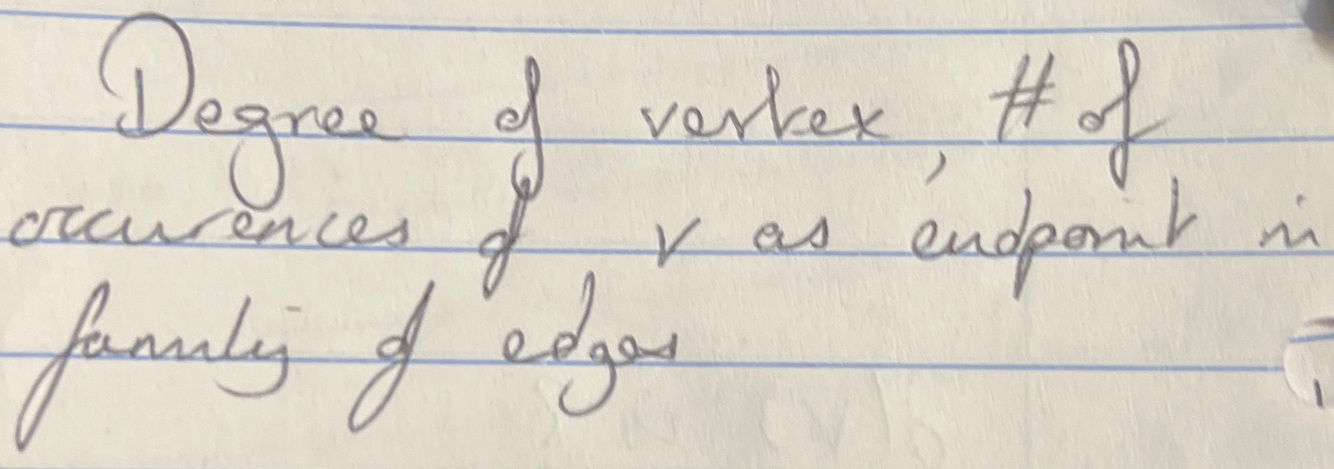 Degree of vertex, # of
occurences of v as endpoint in
family of edges